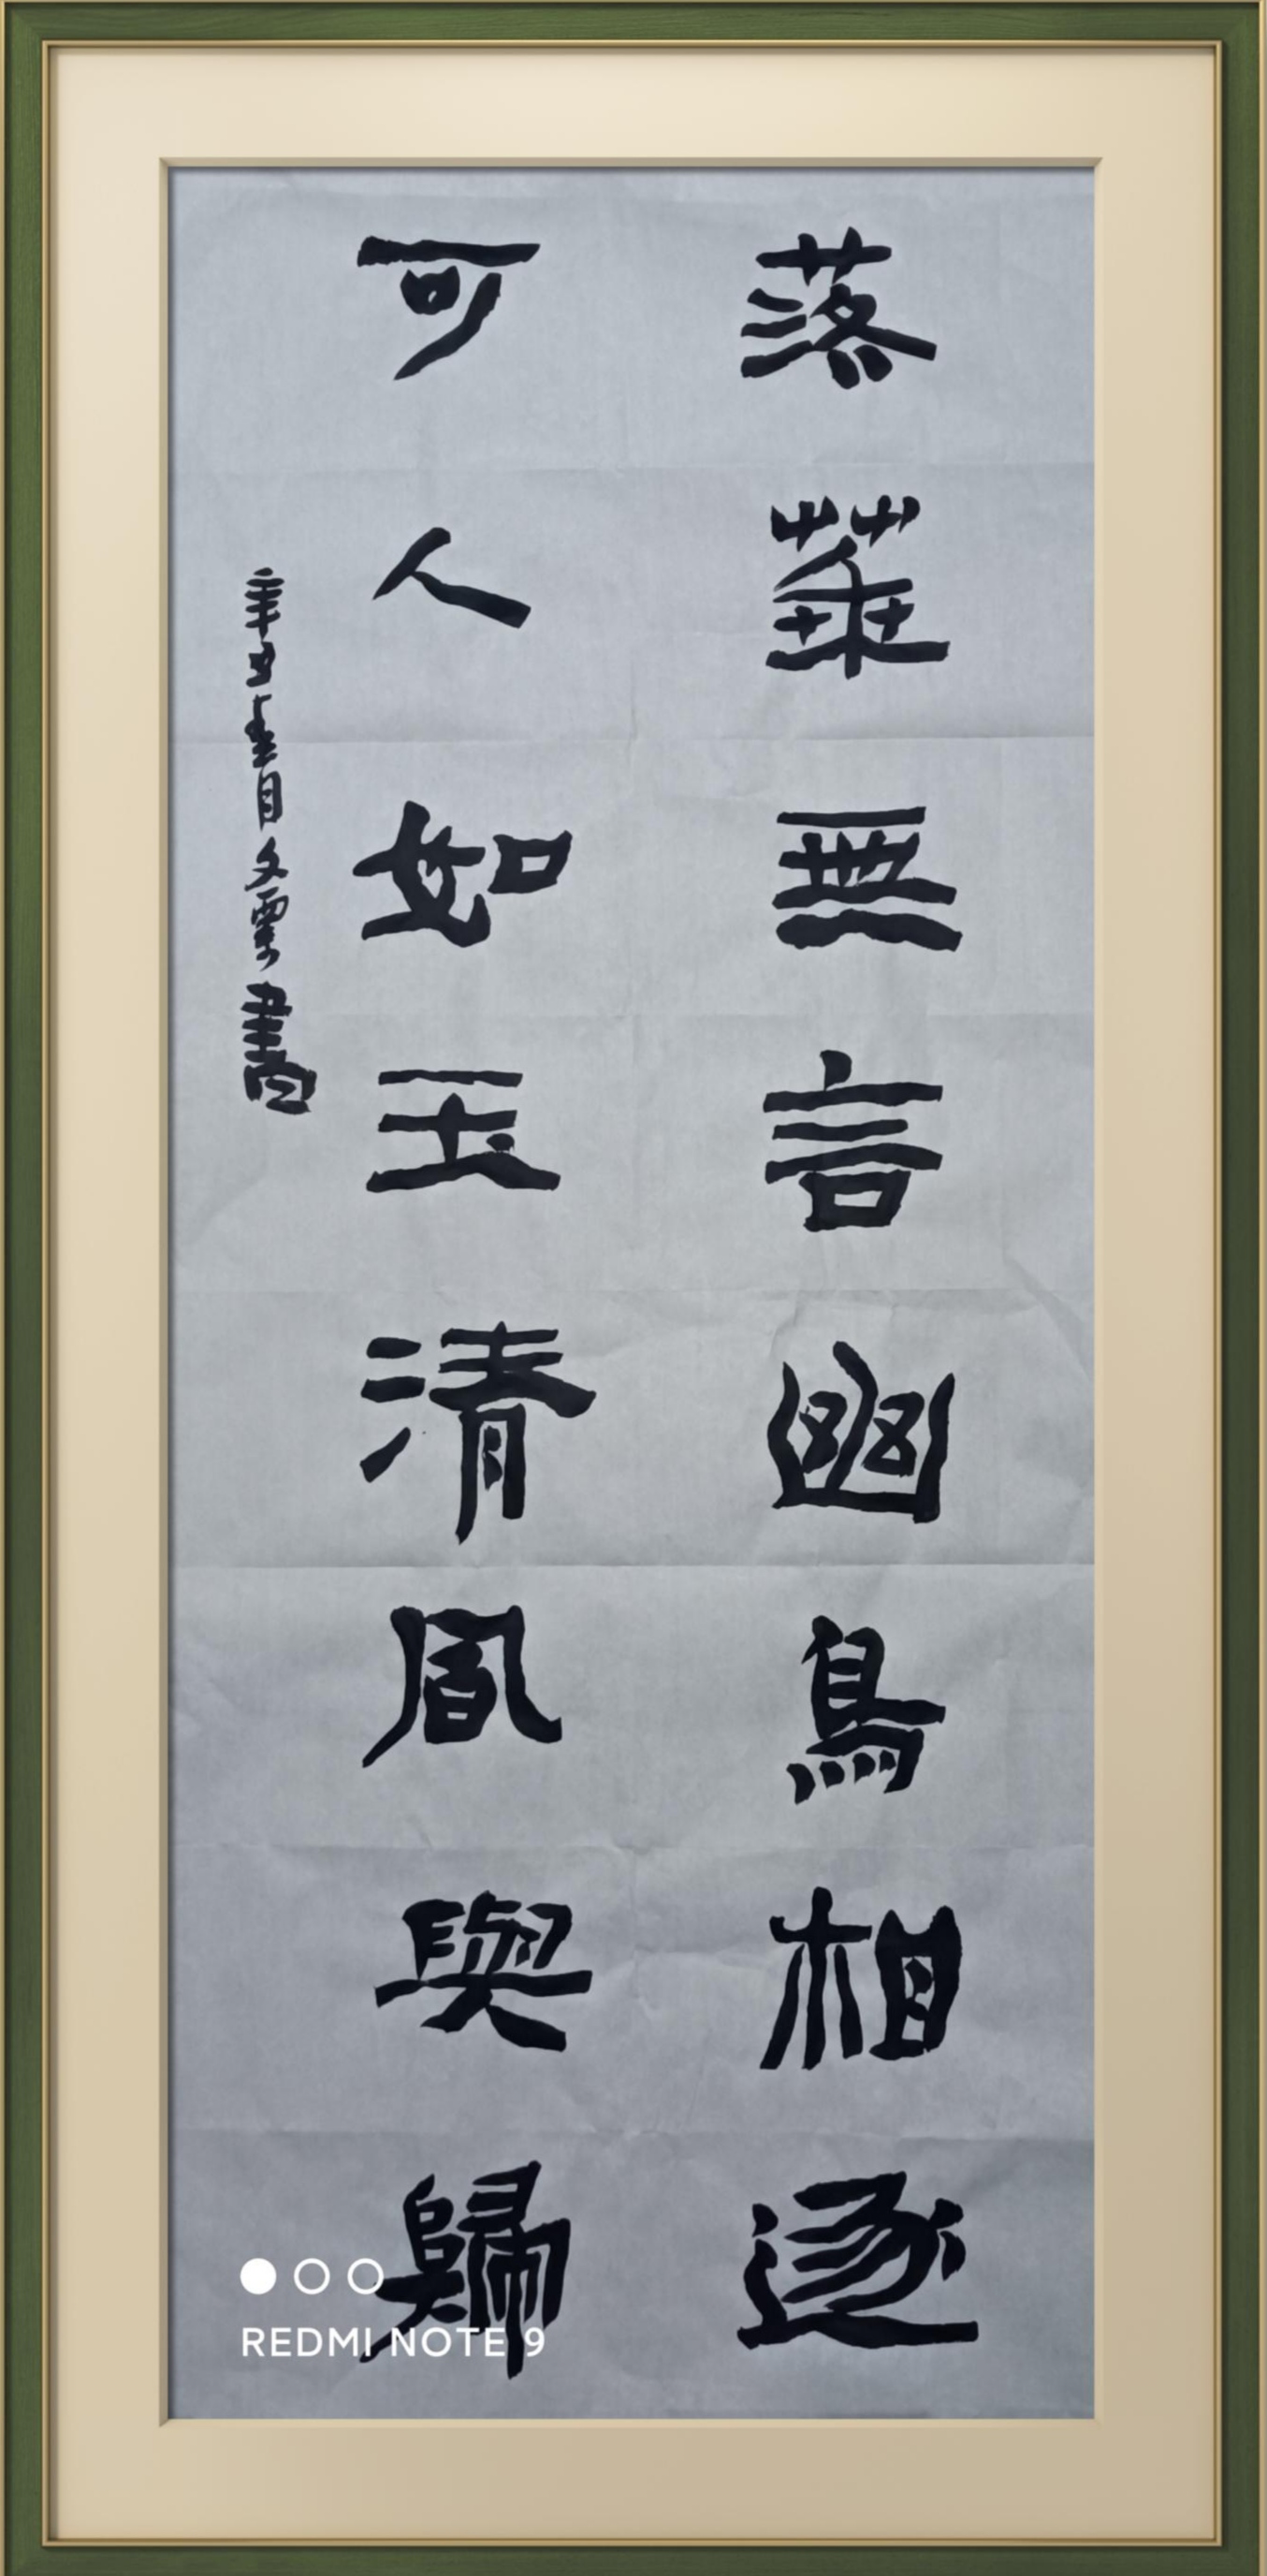 落葉無言幽鳥相逐
可人如玉清風與歸
辛丑春月文粟書
REDMI NOTE 9